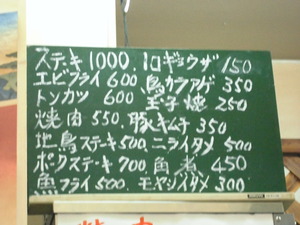 ステキ 1000. 一口ギョウザ 150
エビフライ 600. 鳥カラアゲ 350
トンカツ 600 玉子焼 250
焼肉 550. 豚キムチ 350
地鳥ステーキ 500. ニライタメ 500
ポークステーキ 700 角煮 450
魚フライ 500. モヤシイタメ 300